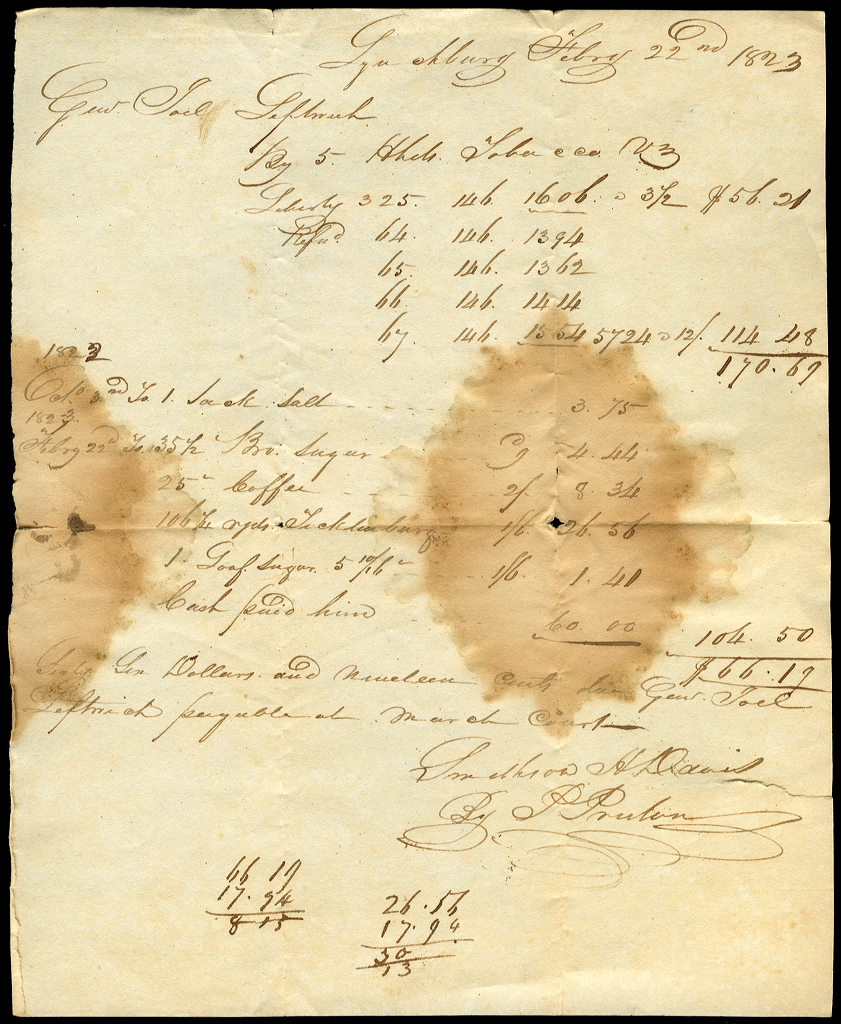 Lynchburg Febry 22nd 1823
Genl. Joel Leftwich
By 5 Hhds. Tobacco Viz
Liberty 325. 146. 1606. @ 3½ $56. 21
Refud. 64. 146. 1394
65. 146. 1362
66 146. 1414
67. 146. 1554 5724 @ 12/. 114 48
170. 69
1823
Octo 3rd To 1. Sack Salt 3. 75
1823
Febry 22d To 35½ " Bro. Sugar 9 4. 44
25 " Coffee 2/. 8. 34
106¼ yds. Ticklinburg 1/6 26. 56
1. Loaf Sugar 5 10/16 " 1/6. 1. 41
Cash paid him 60. 00
104. 50
$66. 19
Sixty Six Dollars and nineteen cents due Genl. Joel
Leftwich payable at March Court
Smithson & Davis
By P Preston
66 19
17. 94
8 15
26. 56
17. 94
30
13